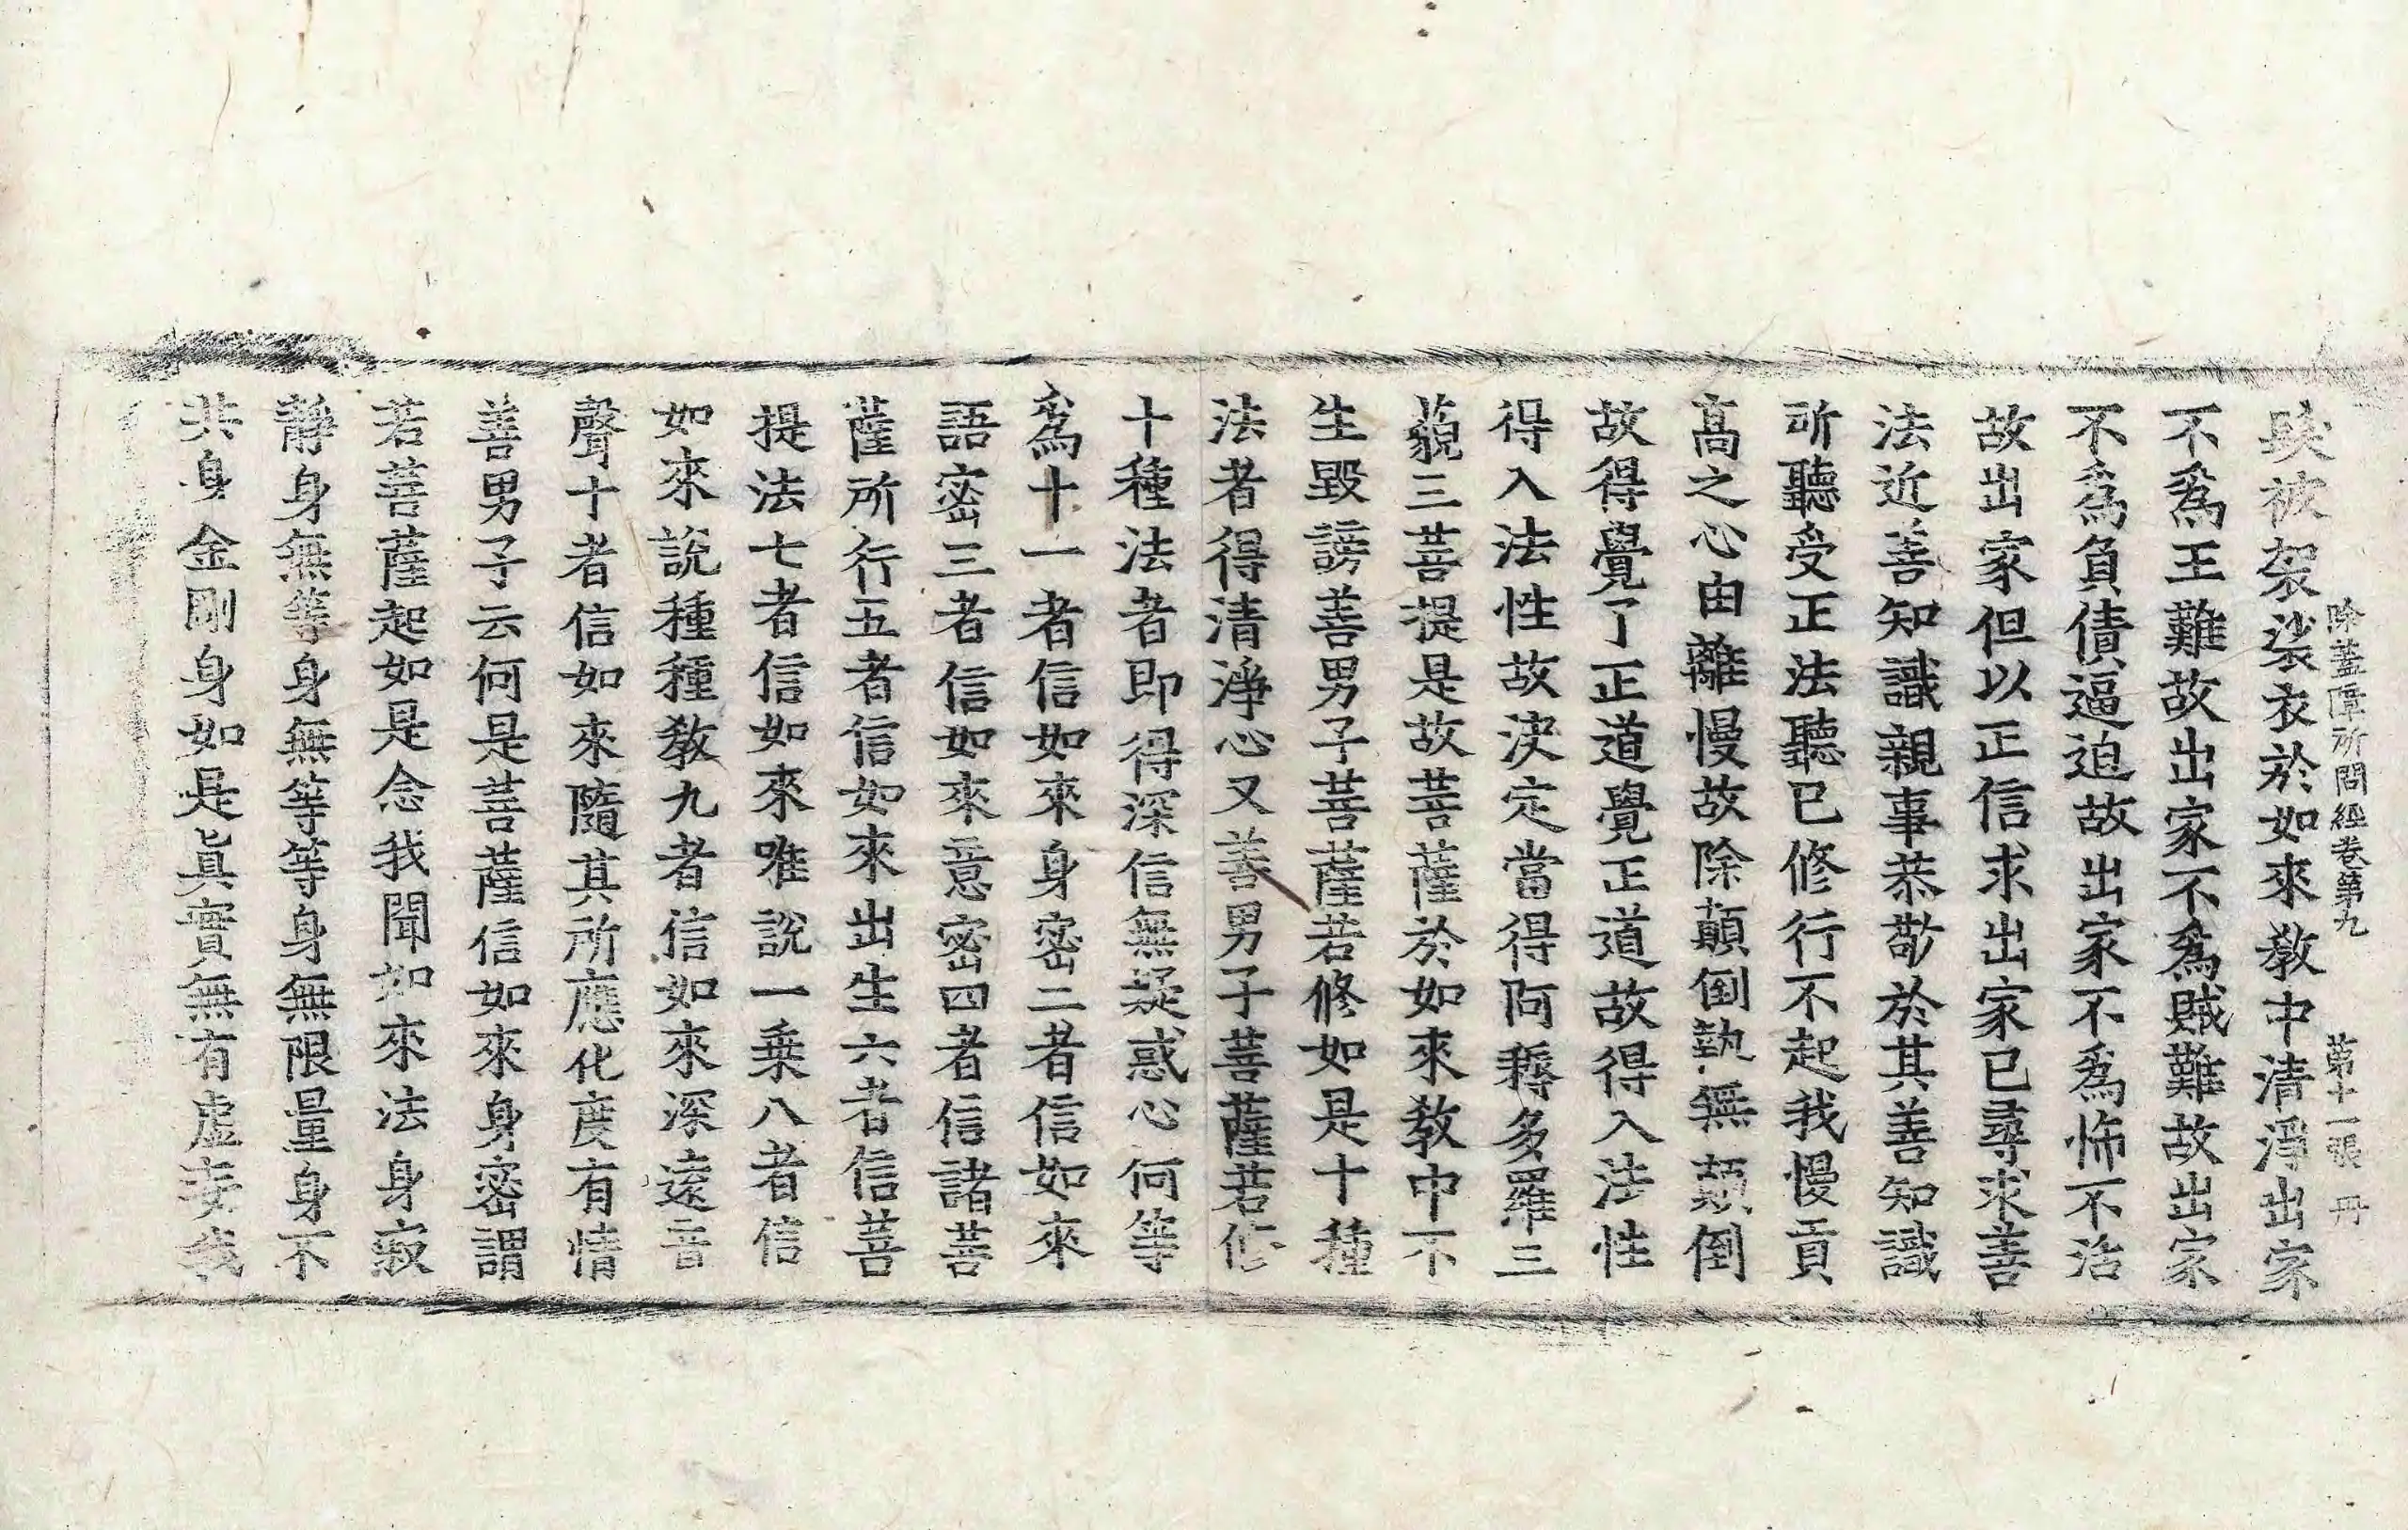 除蓋障所問經卷第九 第十一張 丹
髮被袈裟衣於如來教中清淨出家
不爲王難故出家不爲賊難故出家
不爲負債逼迫故出家不爲怖不活
故出家但以正信求出家已尋求善
法近善知識親事恭敬於其善知識
所聽受正法聽已修行不起我慢貢
高之心由離慢故除顛倒執無顛倒
故得覺了正道覺正道故得入法性
得入法性故決定當得阿耨多羅三
藐三菩提是故菩薩於如來教中不
生毀謗善男子菩薩若修如是十種
法者得清淨心又善男子菩薩若修
十種法者即得深信無疑惑心何等
爲十一者信如來身密二者信如來
語密三者信如來意密四者信諸菩
薩所行五者信如來出生六者信菩
提法七者信如來唯說一乗八者信
如來說種種教九者信如來深遠音
聲十者信如來隨其所應化度有情
善男子云何是菩薩信如來身密謂
若菩薩起如是念我聞如來法身寂
靜身無等身無等等身無限量身不
共身金剛身如是眞實無有虛妄我